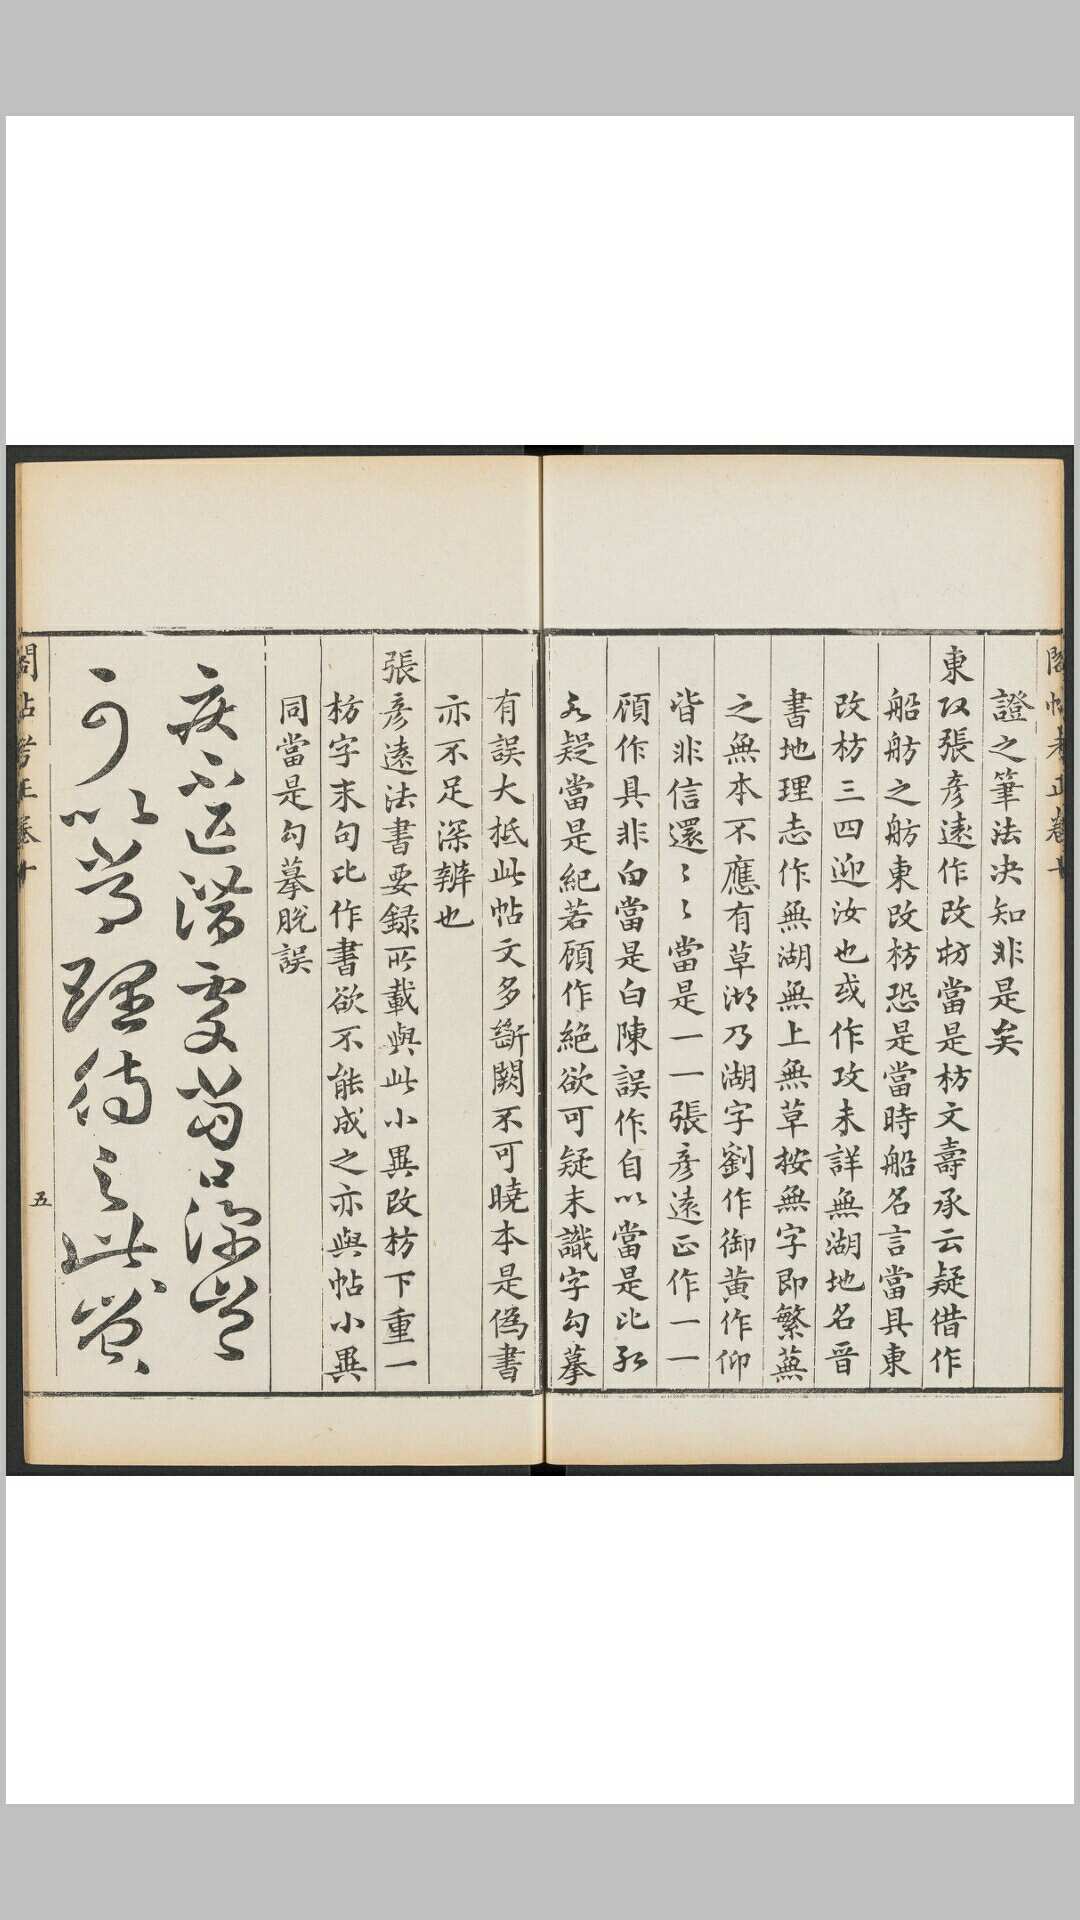 閣帖考正卷十
證之筆法決知非是矣
東改張彥遠作改枋當是枋文壽承云疑借作
船舫之舫東改枋恐是當時船名言當具東
改枋三四迎汝也或作攻未詳無湖地名晉
書地理志作無湖無上無草按無字即繁蕪
之無本不應有草湖乃湖字劉作御黃作仰
皆非信還〻〻當是一一張彥遠正作一一
頎作具非向當是白陳誤作自以當是比
疑當是紀若頎作絕欲可疑末識字勾摹
有誤大抵此帖文多斷闕不可曉本是偽書
亦不足深辨也
張彥遠法書要錄所載與此小異改枋下重一
枋字末句比作書欲不能成之亦與帖小異
同當是勾摹脫誤
疾不退潛處當日深豈
可以常理待之此豈
閣帖考正卷十
五